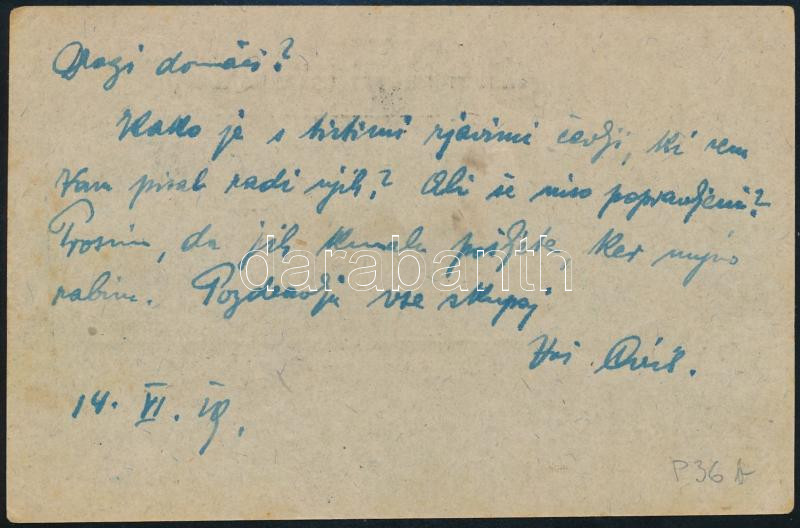 Dragi domači?
Kako je s tistimi rjavimi čevlji, ki sem
Vam pisal radi njih? Ali še niso popravljeni?
Prosim, da jih kmalu pošljete, ker nujno
rabim. Pozdravlja vse skupaj
Vaš
14. VI.
P36
darabanth